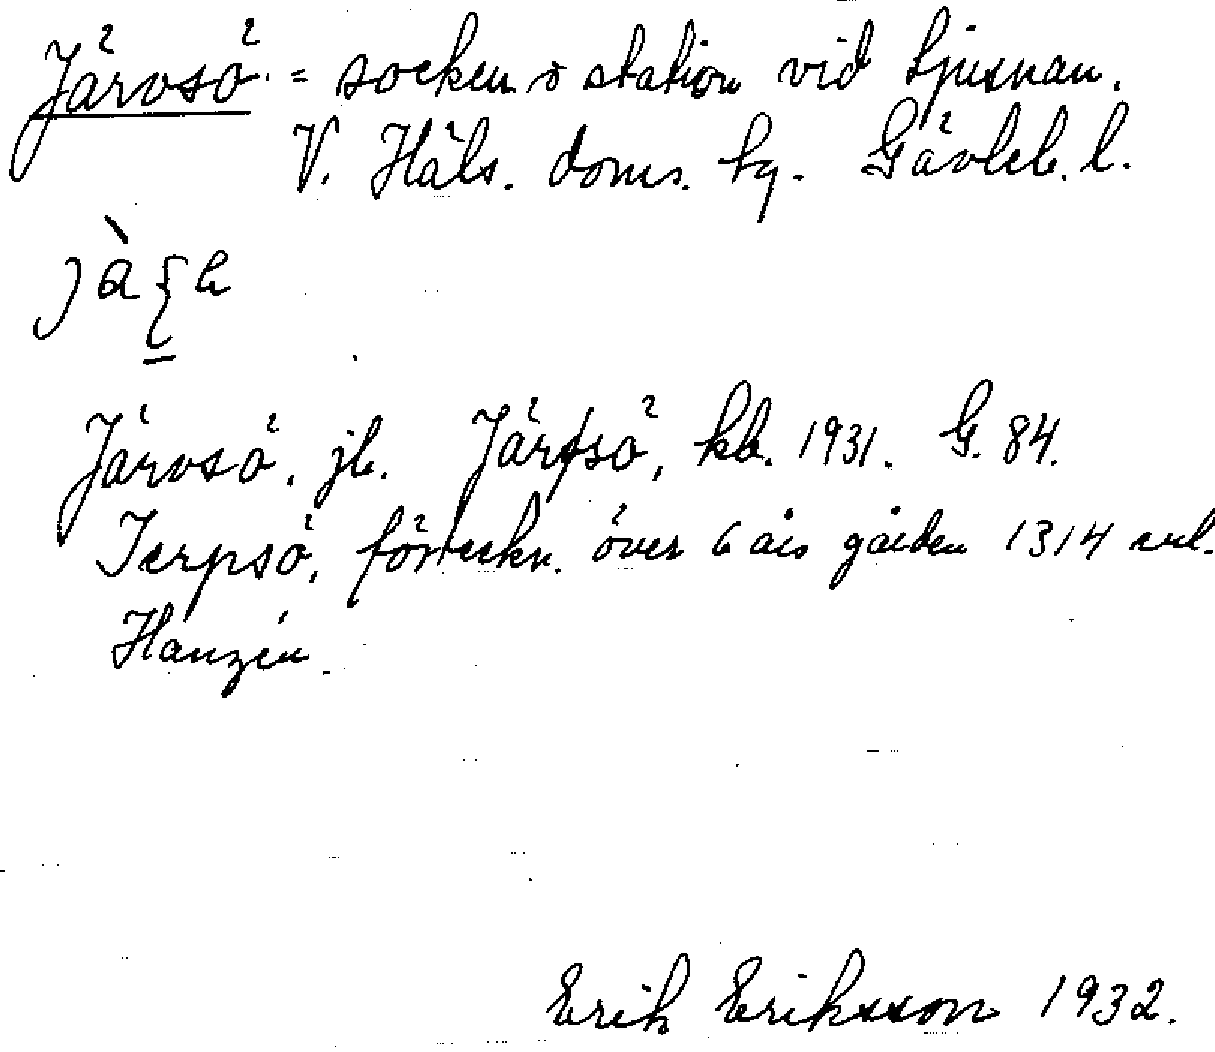 Järvsö = socken o station vid Ljusnan.
V. Häls. doms. hg. Gävleb. l.
Järvsö, jb. Järfsö, kb. 1931. G. 84.
Jerpsö, förteckn. över 6 års gärden 1314 enl.
Hanzén.
Erik Eriksson 1932.